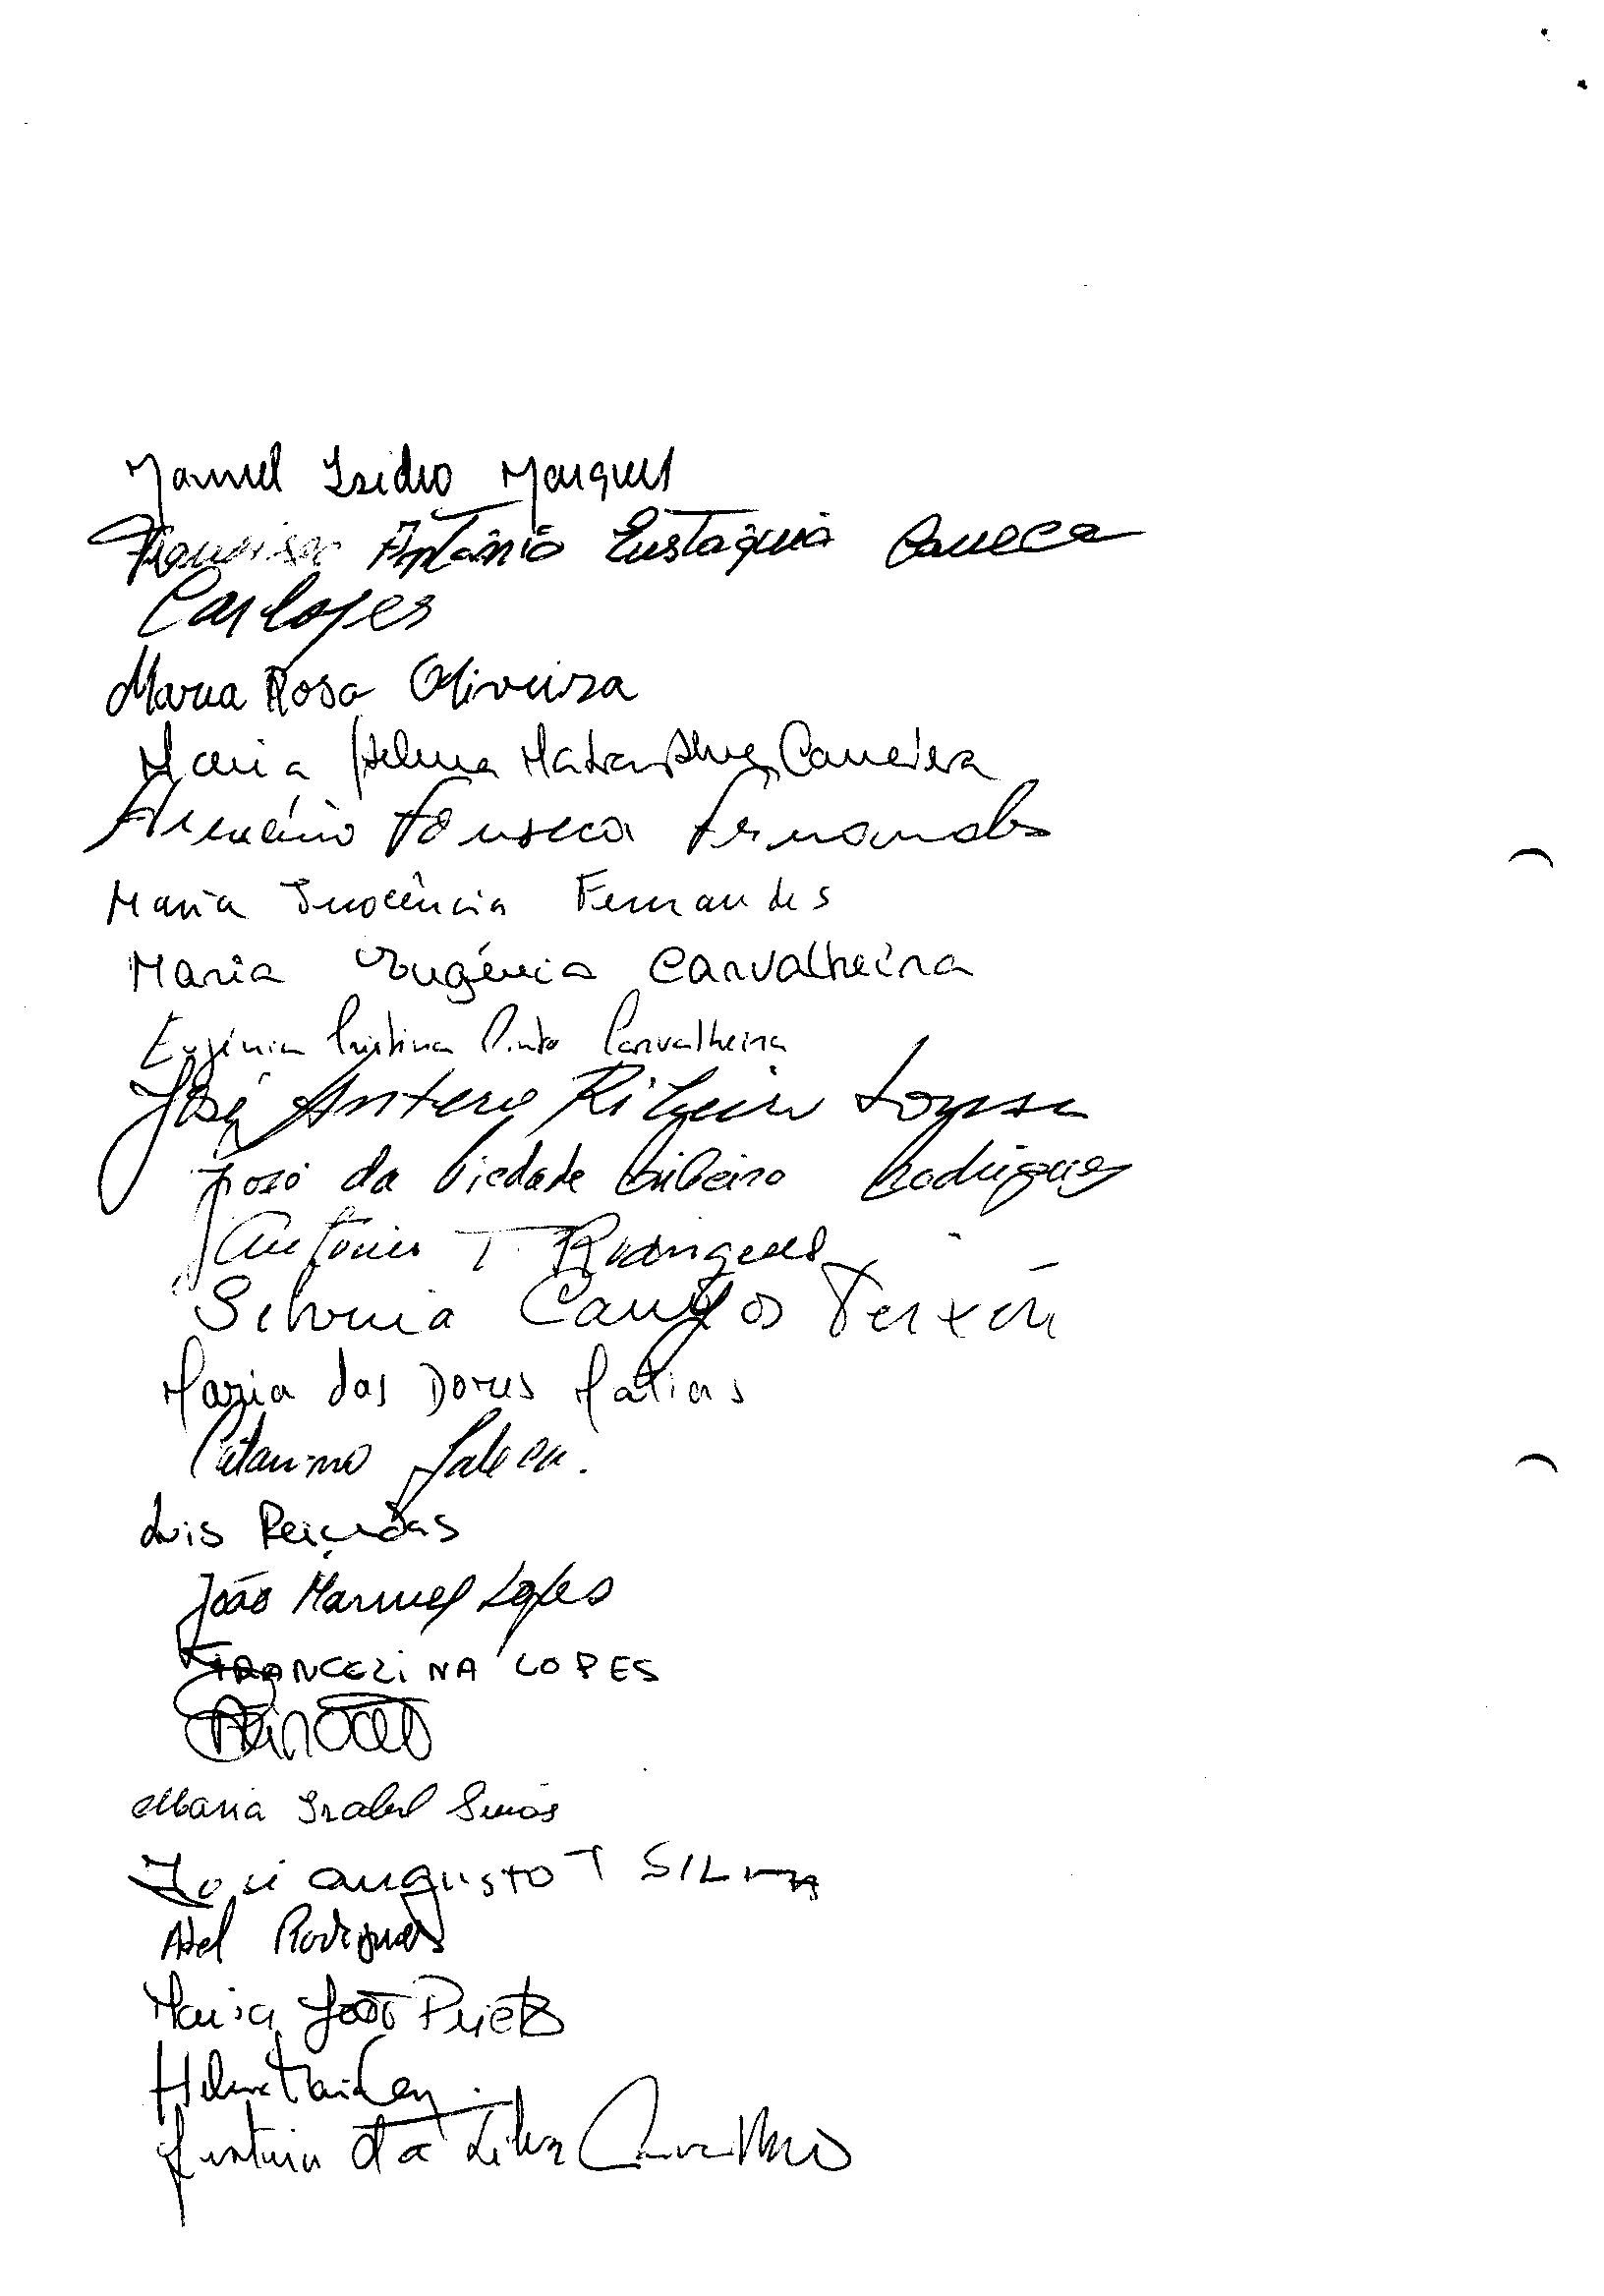 Manuel Isidro Marques
Francisco António Eustáquio Caneca
Carlopes
Maria Rosa Oliveira
Maria Helena Carreira
Fonseca Fernandes
Maria Inocência Fernandes
Maria Eugénia Carvalheira
Eugénia Cristina Pinto Carvalheira
José Antero Ribeiro
José da Piedade Ribeiro Rodrigues
António T. Rodrigues
Silvina Campos
Maria das Dores Matias
Catarina
Luis
João Manuel Lopes
FRANCELINA LOPES
Maria Isabel Simões
José Augusto T SILVA
Abel Rodrigues
Maria João Prieto
Helena
da Silva Carvalho